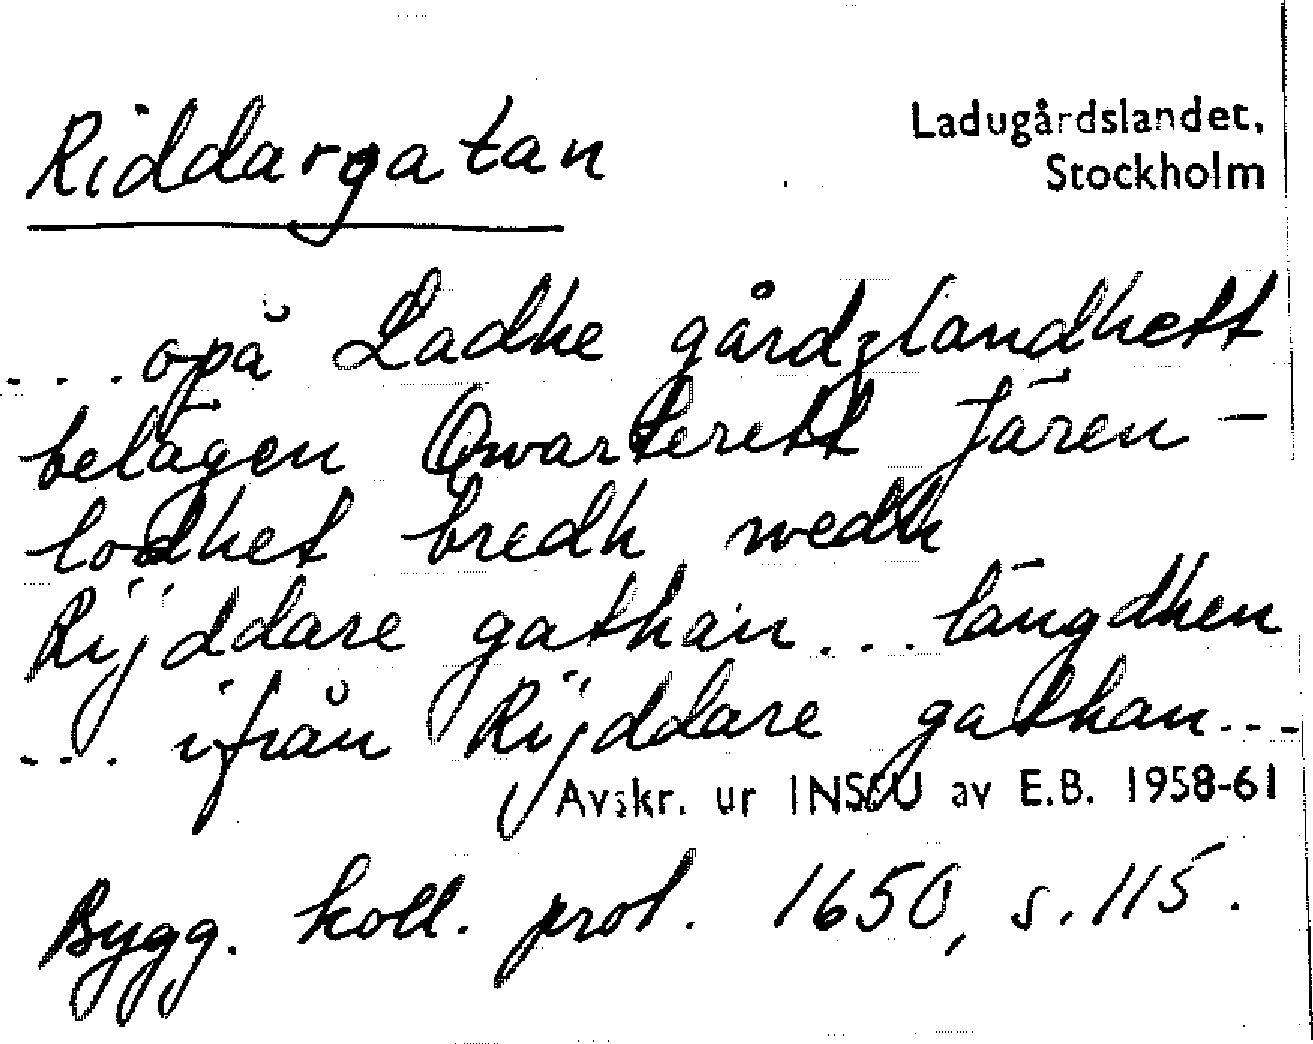 Riddargatan
Ladugårdslandet,
Stockholm
. . . . opå Ladhe gårdzlandhett
belägen Qwarterett Jären-
lodhet bredh wedh
Rijddare gathan . . . längdhen
. . . ifrån Rijddare gathan . . .
Avskr. ur INSUU av E.B. 1958-61
Bygg. koll. prot. 1650, s. 115.